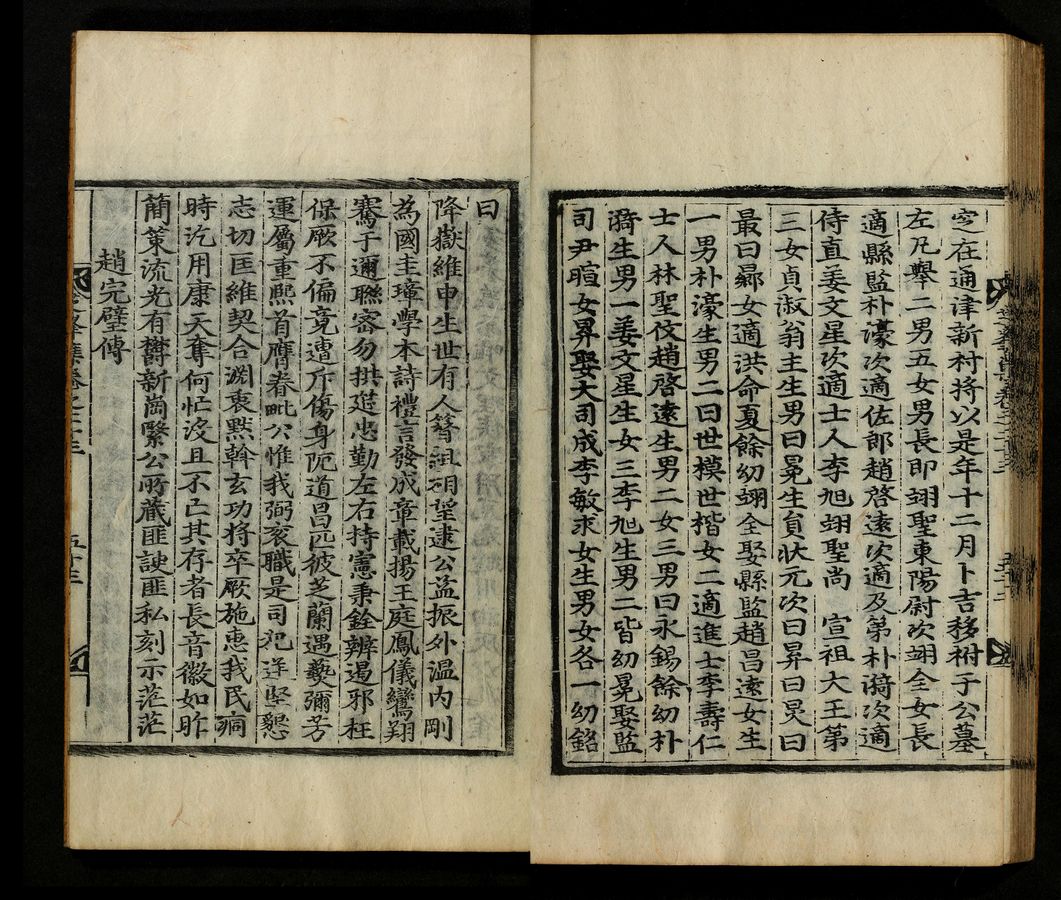 窆在通津新村將以是年十二月卜吉移祔于公墓
左凡擧二男五女男長卽翊聖東陽尉次翊全女長
適縣監朴濠次適佐郎趙啓遠次適及第朴漪次適
侍直姜文星次適士人李旭翊聖尚 宣祖大王第
三女貞淑翁主生男曰冕生員狀元次曰昇曰炅曰
最曰䎖女適洪命夏餘幼翊全娶縣監趙昌遠女生
一男朴濠生男二曰世模世楷女二適進士李壽仁
士人林聖伋趙啓遠生男二女三男曰永錫餘幼朴
漪生男一姜文星生女三李旭生男二皆幼冕娶監
司尹暄女昇娶大司成李敏求女生男女各一幼銘
曰
降嶽維申生世有人簪組硝望逮公益振外溫內剛
爲國圭璋學本詩禮言發成章載揚王庭鳳儀鸞翔
騫于邇聯密勿拱進忠勤左右持憲秉銓辨遏邪枉
保厥不偏竟遭斥傷身阨道昌匹彼芝蘭遇爇彌芳
運屬重熙首膺眷毗公惟我弼袞職是司犯逆堅懇
志切匡維契合淵衷默斡玄功將卒厥施惠我民痌
時汔用康天奪何忙沒且不亡其存者長音徽如昨
蘭䇿流光有欝新崗緊公所藏匪諛匪私刻示茫茫
趙完璧傳